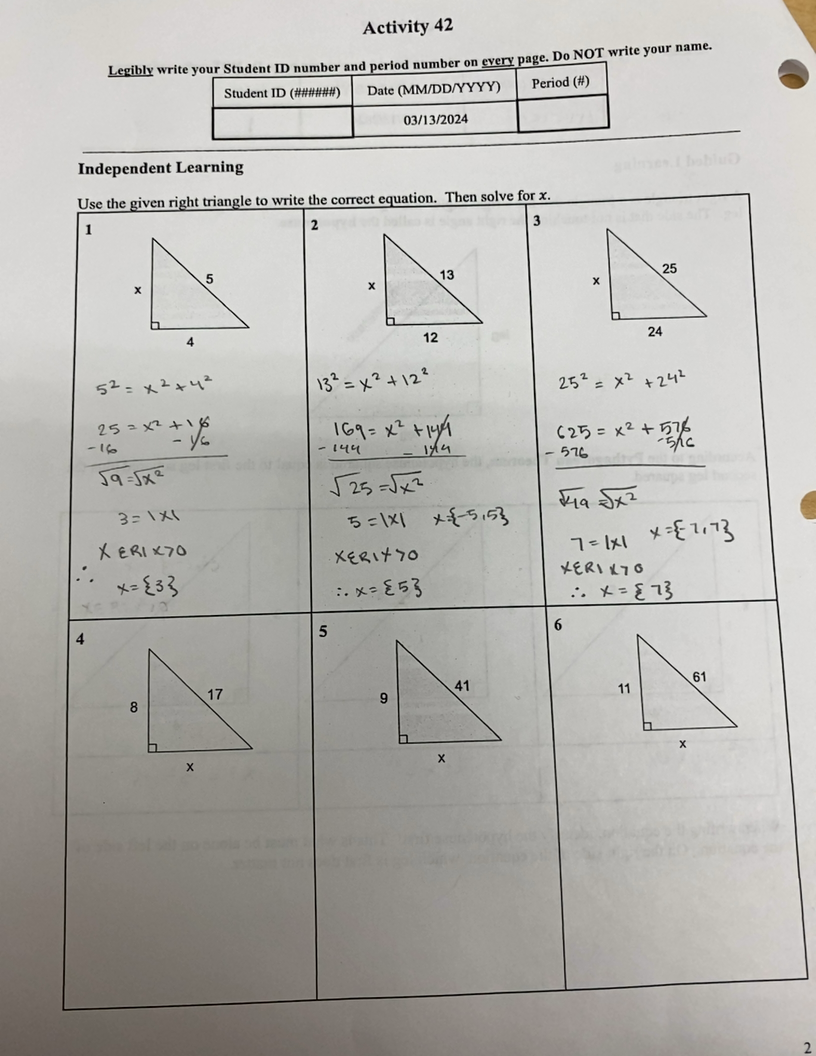 Activity 42
Legibly write your Student ID number and period number on every page. Do NOT write your name.
Student ID (######) Date (MM/DD/YYYY) Period (#)
03/13/2024
Independent Learning
Use the given right triangle to write the correct equation. Then solve for x.
1
x
5
4
5² = x² + 4²
25 = x² + 16
-16 - 16
√9 = √x²
3 = |x|
x ∈ R | x > 0
∴ x = {3}
2
x
13
12
13² = x² + 12²
169 = x² + 144
- 144 - 144
√25 = √x²
5 = |x| x = {-5, 5}
x ∈ R | x > 0
∴ x = {5}
3
x
25
24
25² = x² + 24²
625 = x² + 576
- 576 - 576
√49 = √x²
7 = |x| x = {7, 7}
x ∈ R | x > 0
∴ x = {7}
4
8
17
x
5
9
41
x
6
11
61
x
2